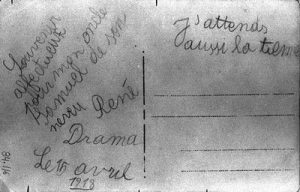 Souvenir
affectueux
pour mon oncle
Samuel de son
neveu René
Drama
Le 15 avril
1918
J'attends
aussi la tienne